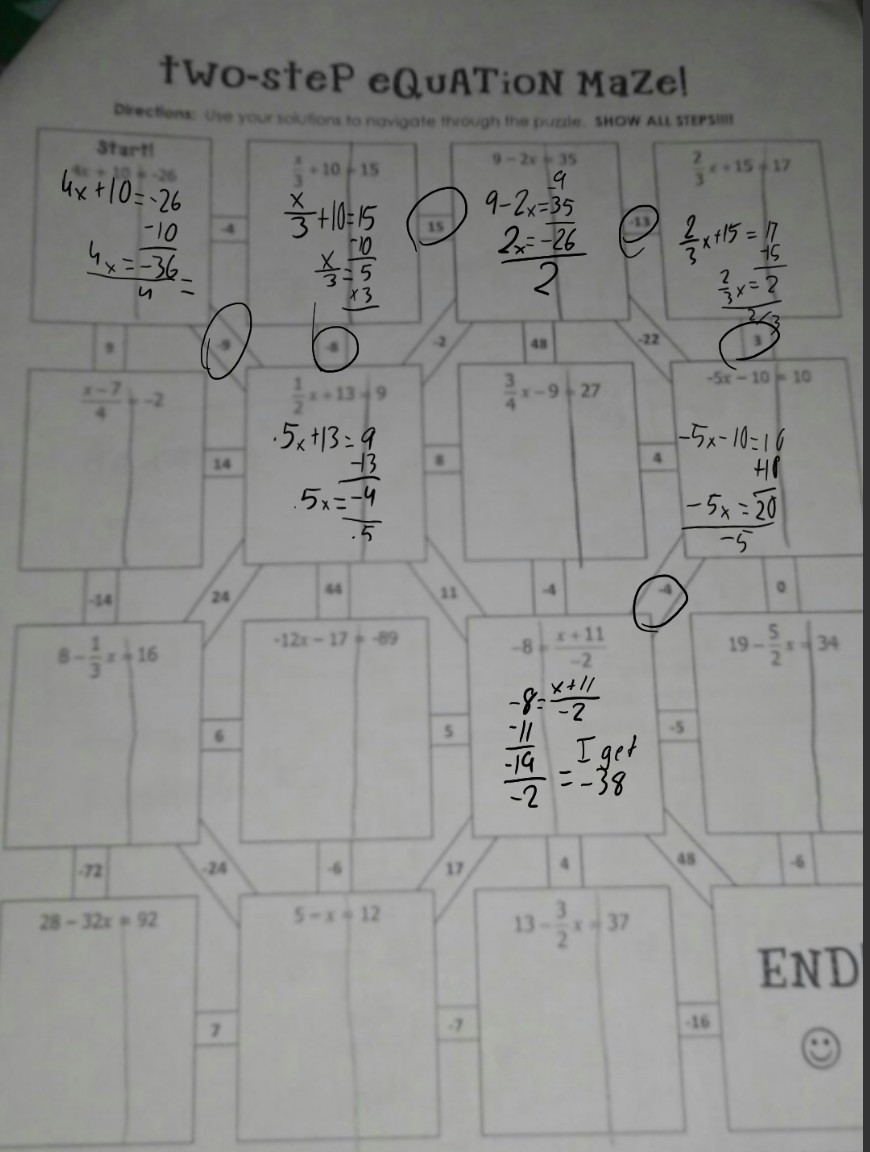 tWO-steP eQuATiON MaZe!
Directions: Use your solutions to navigate through the puzzle. SHOW ALL STEPS!!!!
Start!
4x + 10 = -26
4x+10=-26
-10
4x=-36
4 =
-4
x/3 + 10 = 15
x/3+10=15
-10
x/3=5
x3
15
9 - 2x = 35
-9
9-2x=35
2x=-26
2
-13
2/3 x + 15 = 17
2/3x+15=17
-15
2/3x=2
2/3
9
-9
-8
-2
48
-22
3
x - 7/4 = -2
14
1/2 x + 13 = 9
.5x+13=9
-13
.5x=-4
.5
8
3/4 x - 9 = 27
4
-5x - 10 = 10
-5x-10=10
+10
-5x=20
-5
-14
24
44
11
-4
-4
0
8 - 1/3 x = 16
6
-12x - 17 = -89
5
-8 = x + 11/-2
-8=x+11/-2
-11
-19
-2
I get
=-38
-5
19 - 5/2 x = 34
-72
-24
-6
17
4
48
-6
28 - 32x = 92
7
5 - x = 12
-7
13 - 3/2 x = 37
-16
END